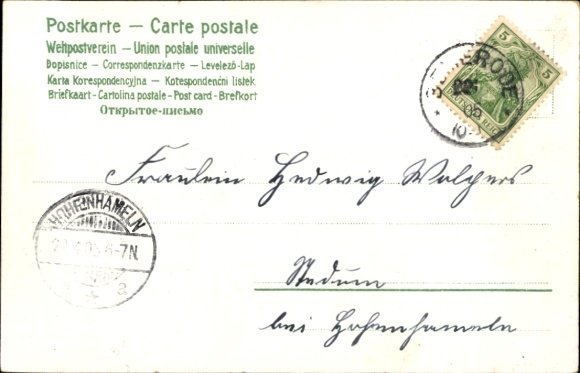 Postkarte — Carte postale
Weltpostverein — Union postale universelle
Dopisnice — Correspondenzkarte — Levelező-Lap
Karta Korespondencyjna — Kotespondenčni listek
Briefkaart - Cartolina postale - Post card - Brefkort
Открытое-письмо
5 5
BEMERODE
Fräulein Hedwig Walpers
HOHENHAMELN
6-7N.
Stedum
bei Hohenhameln